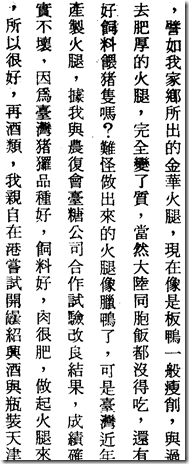 ，譬如我家鄉所出的金華火腿，現在像是板鴨一般瘦創，與過
去肥厚的火腿，完全變了質，當然大陸同胞飯都沒得吃，還有
好飼料餵猪隻嗎？難怪做出來的火腿像臘鴨了，可是臺灣近年
產製火腿，據我與農復會臺糖公司合作試驗改良結果，成績確
實不壞，因爲臺灣猪玀品種好，飼料好，肉很肥，做起火腿來
，所以很好，再酒類，我親自在港嘗試開罎紹興酒與瓶裝天津